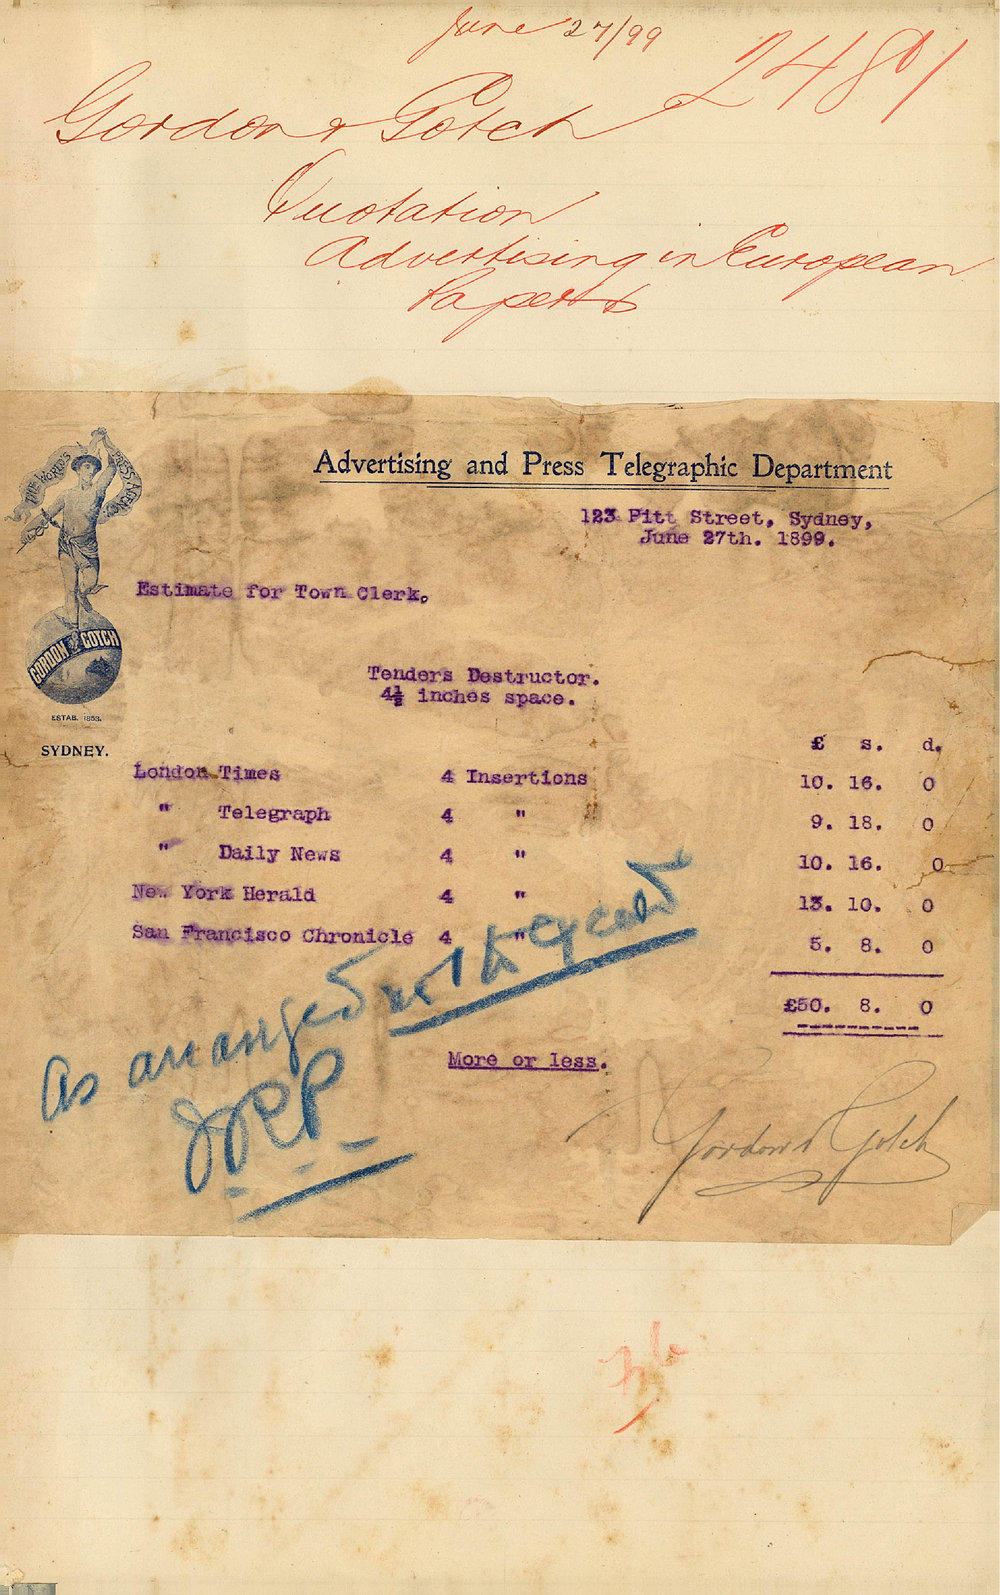 June 27/99
2481
Gordon & Gotch
Quotation
Advertising in European
Papers
THE WORLD'S PRESS AGENCY
GORDON & GOTCH
ESTAB. 1853.
SYDNEY.
Advertising and Press Telegraphic Department
123 Pitt Street, Sydney,
June 27th. 1899.
Estimate for Town Clerk.
Tenders Destructor.
4½ inches space.
£ s. d.
London Times 4 Insertions 10. 16. 0
" Telegraph 4 " 9. 18. 0
" Daily News 4 " 10. 16. 0
New York Herald 4 " 13. 10. 0
San Francisco Chronicle 4 " 5. 8. 0
£50. 8. 0
More or less.
As arranged not to exceed
Gordon & Gotch